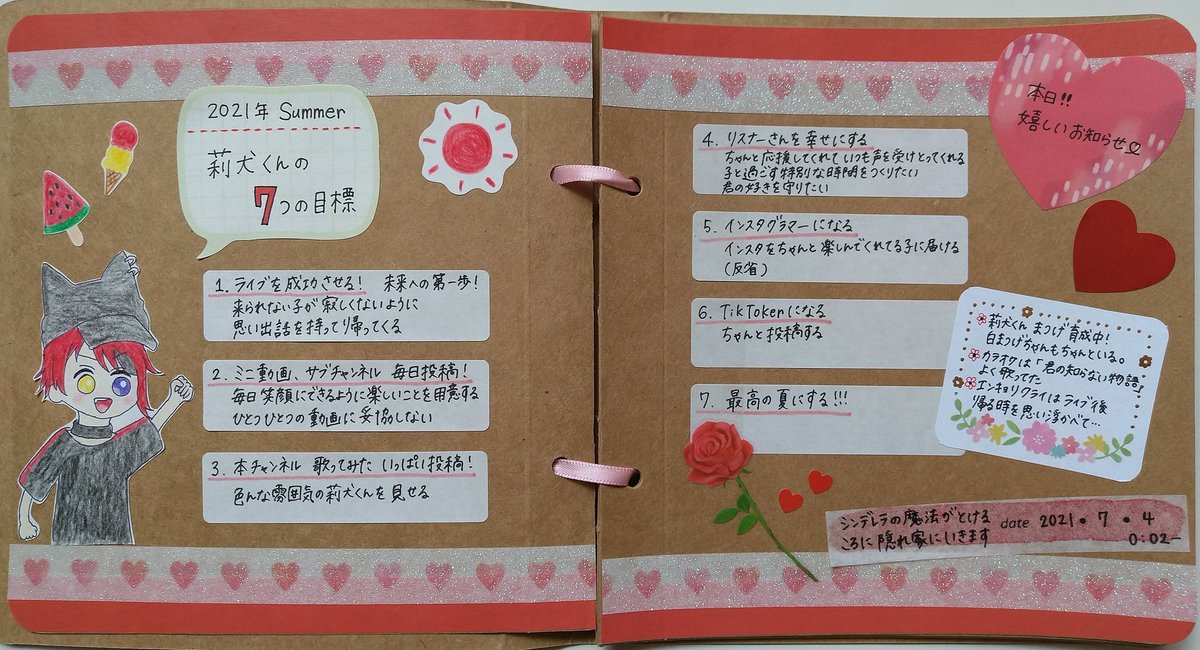 2021年 Summer
莉犬くんの
7つの目標
1. ライブを成功させる! 未来への第一歩!
来られない子が寂しくないように
思い出話を持って帰ってくる
2. ミニ動画、サブチャンネル 毎日投稿!
毎日笑顔にできるように楽しいことを用意する
ひとつひとつの動画に妥協しない
3. 本チャンネル 歌ってみた いっぱい投稿!
色んな雰囲気の莉犬くんを見せる
4. リスナーさんを幸せにする
ちゃんと応援してくれていつも声を受けとってくれる
子と過ごす特別な時間をつくりたい
君の好きを守りたい
5. インスタグラマーになる
インスタをちゃんと楽しんでくれてる子に届ける
(反省)
6. TikTokerになる
ちゃんと投稿する
7. 最高の夏にする!!!
本日!!
嬉しいお知らせ♡
莉犬くん まつげ育成中!
白まつげちゃんもちゃんといる。
カラオケは「君の知らない物語」
よく歌ってた
エンキョリクライはライブ後
帰る時を思い浮かべて…
シンデレラの魔法がとける
ころに隠れ家にいきます
date 2021・7・4
0:02〜